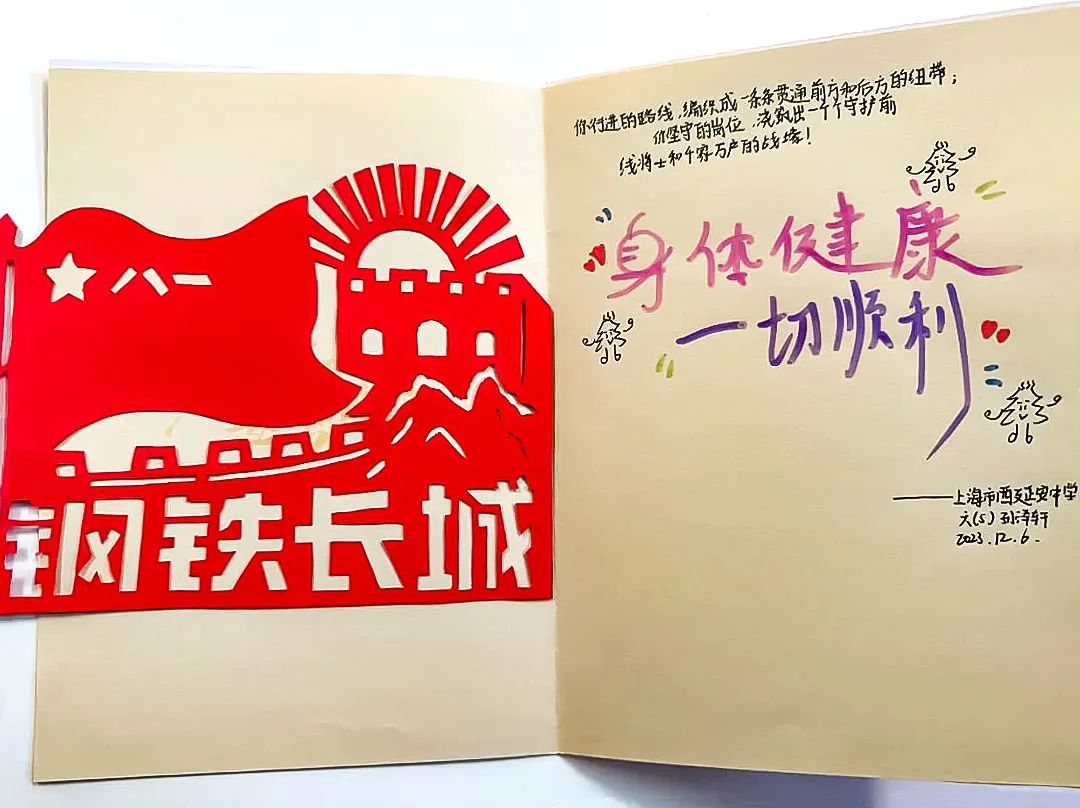 八一
钢铁长城
你行进的路线,编织成一条条贯通前方和后方的纽带;
你坚守的岗位,浇筑出一个个守护前
线将士和千家万户的战壕!
身体健康
一切顺利
——上海市西延安中学
六(5) 孙泽轩
2023.12.6.